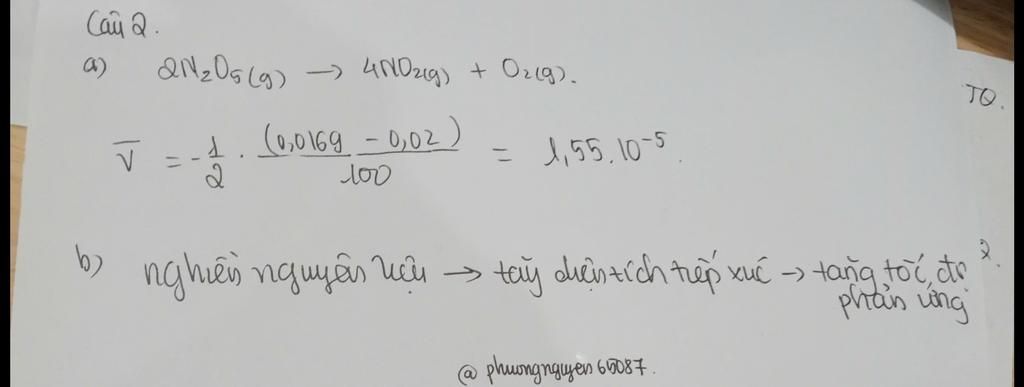 Câu 2.
a) 2N₂O₅(g) → 4NO₂(g) + O₂(g).
TQ.
v̅ = -1/2 . (0,0169 - 0,02)/100 = 1,55.10⁻⁵.
b) nghiền nguyên liệu → tăg diện tích tiếp xúc → tăng tốc độ 2.
phản ứng
@phuongnguyen65087.